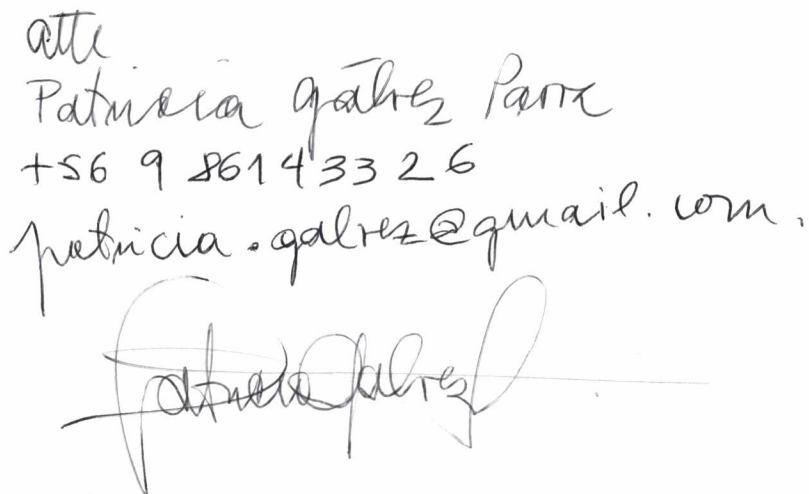 atte
Patricia Gálvez Parra
+56 9 86143326
patricia.galvez@gmail.com.
Patricia Galvez